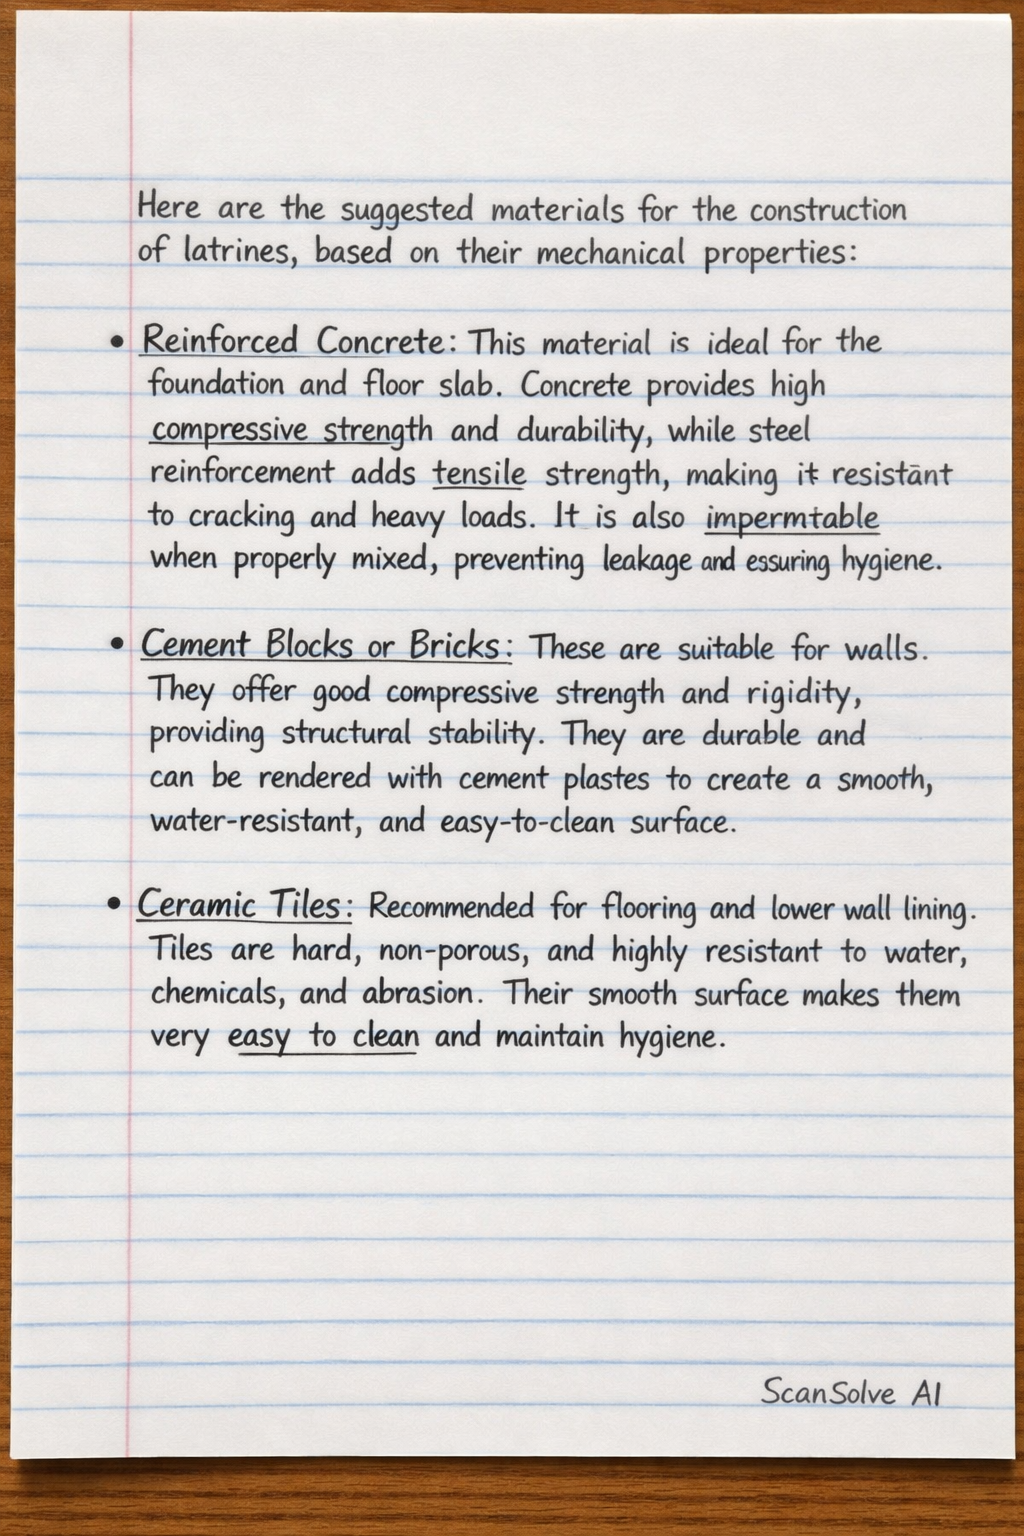 Here are the suggested materials for the construction
of latrines, based on their mechanical properties:
• Reinforced Concrete: This material is ideal for the
foundation and floor slab. Concrete provides high
compressive strength and durability, while steel
reinforcement adds tensile strength, making it resistānt
to cracking and heavy loads. It is also impermtable
when properly mixed, preventing leakage and essuring hygiene.
• Cement Blocks or Bricks: These are suitable for walls.
They offer good compressive strength and rigidity,
providing structural stability. They are durable and
can be rendered with cement plastes to create a smooth,
water-resistant, and easy-to-clean surface.
• Ceramic Tiles: Recommended for flooring and lower wall lining.
Tiles are hard, non-porous, and highly resistant to water,
chemicals, and abrasion. Their smooth surface makes them
very easy to clean and maintain hygiene.
ScanSolve AI